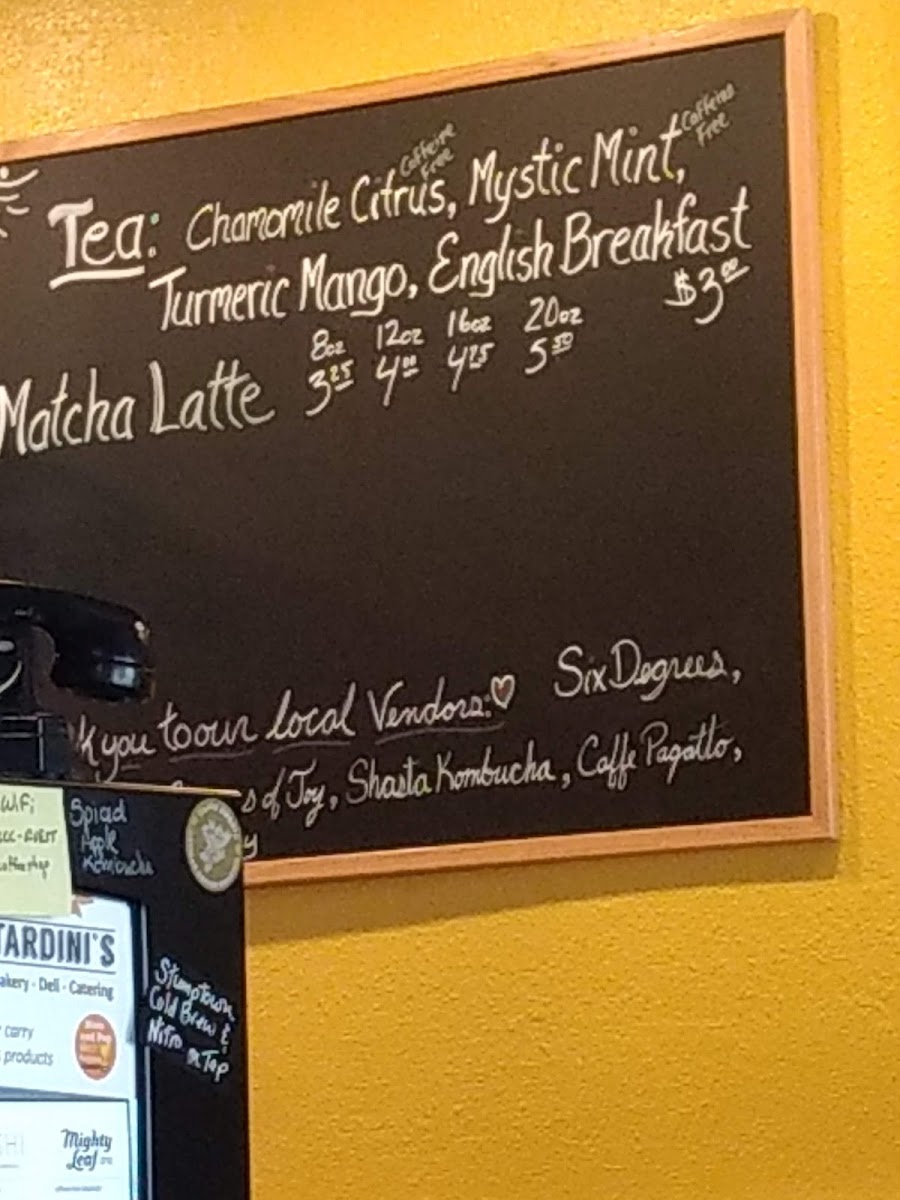 Caffeine Free
Caffeine Free
Tea: Chamomile Citrus, Mystic Mint,
Turmeric Mango, English Breakfast
$3.00
8oz 12oz 16oz 20oz
Matcha Latte 3.25 4.00 4.75 5.50
you to our local Vendors: Six Degrees,
of Joy, Shasta Kombucha, Caffe Pagatto,
WiFi
Spiced
Apple
Kombucha
TARDINI'S
akery - Deli - Catering
carry
products
Stumptown
Cold Brew &
Nitro on Tap
Mighty
Leaf